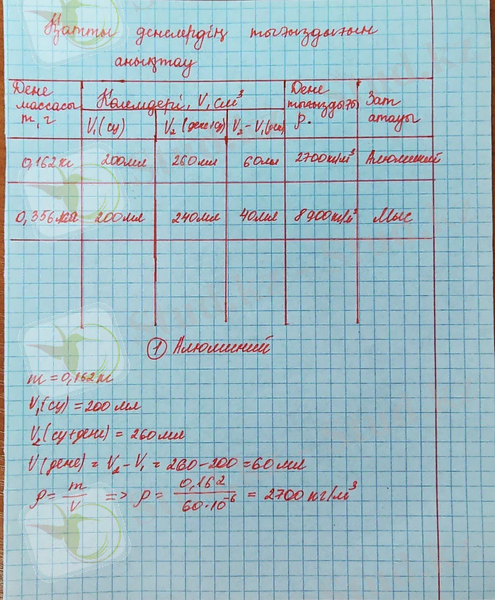 Қатты денелердің тығыздығын
анықтау
Дене массасы m, г | Көлемдері, V, см³ | Дене тығыздығы ρ. | Зат атауы
V₁(су) | V₂(дене+су) | V₂-V₁(дене)
0,162 кг | 200мл | 260мл | 60мл | 2700кг/м³ | Алюминий
0,356 кг | 200мл | 240мл | 40мл | 8900кг/м³ | Мыс
① Алюминий
m = 0,162 кг
V₁(су) = 200 мл
V₂(су+дене) = 260 мл
V(дене) = V₂ - V₁ = 260-200 = 60 мл
ρ = m/V => ρ = 0,162/60·10⁻⁶ = 2700 кг/м³